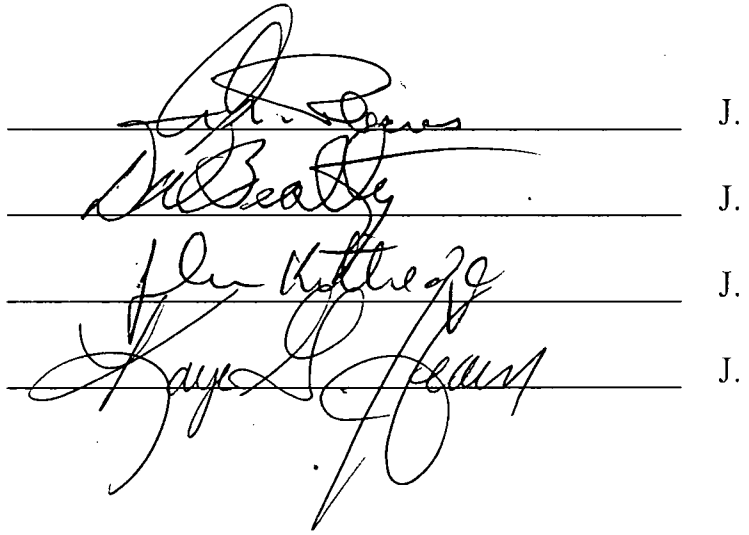 J.
D W Beatty J.
John Kittredge J.
Kaye G. Hearn J.